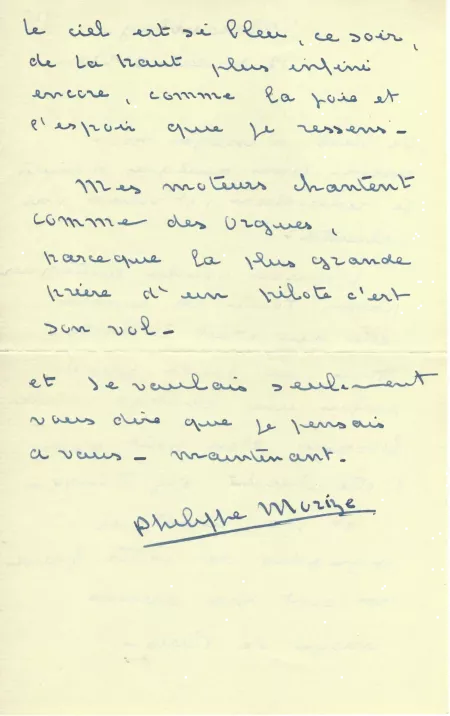 le ciel est si bleu, ce soir,
de là haut plus infini
encore, comme la joie et
l'espoir que je ressens -
Mes moteurs chantent
comme des orgues,
parceque la plus grande
prière d'un pilote c'est
son vol -
et je voulais seulement
vous dire que je pensais
a vous - maintenant.
Philippe Morize